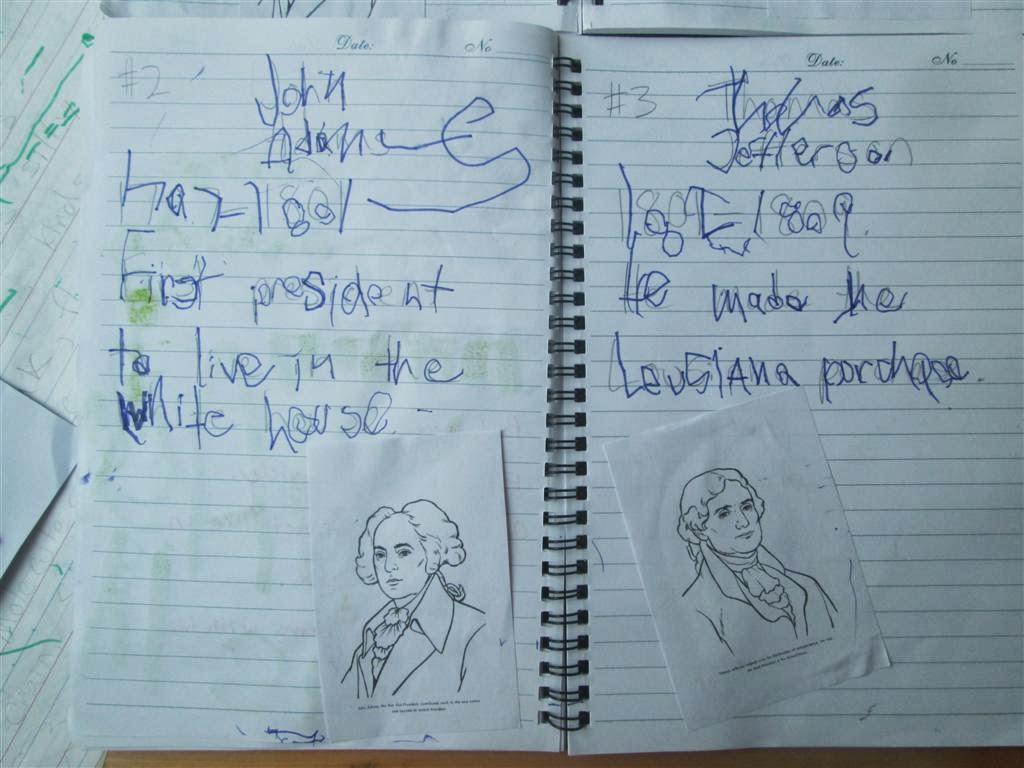 Date: No
#2 John
Adams
1797-1801
First president
to live in the
White house.
Date: No
#3 Thomas
Jefferson
1801-1809.
He made the
LeuSiAna porchase.